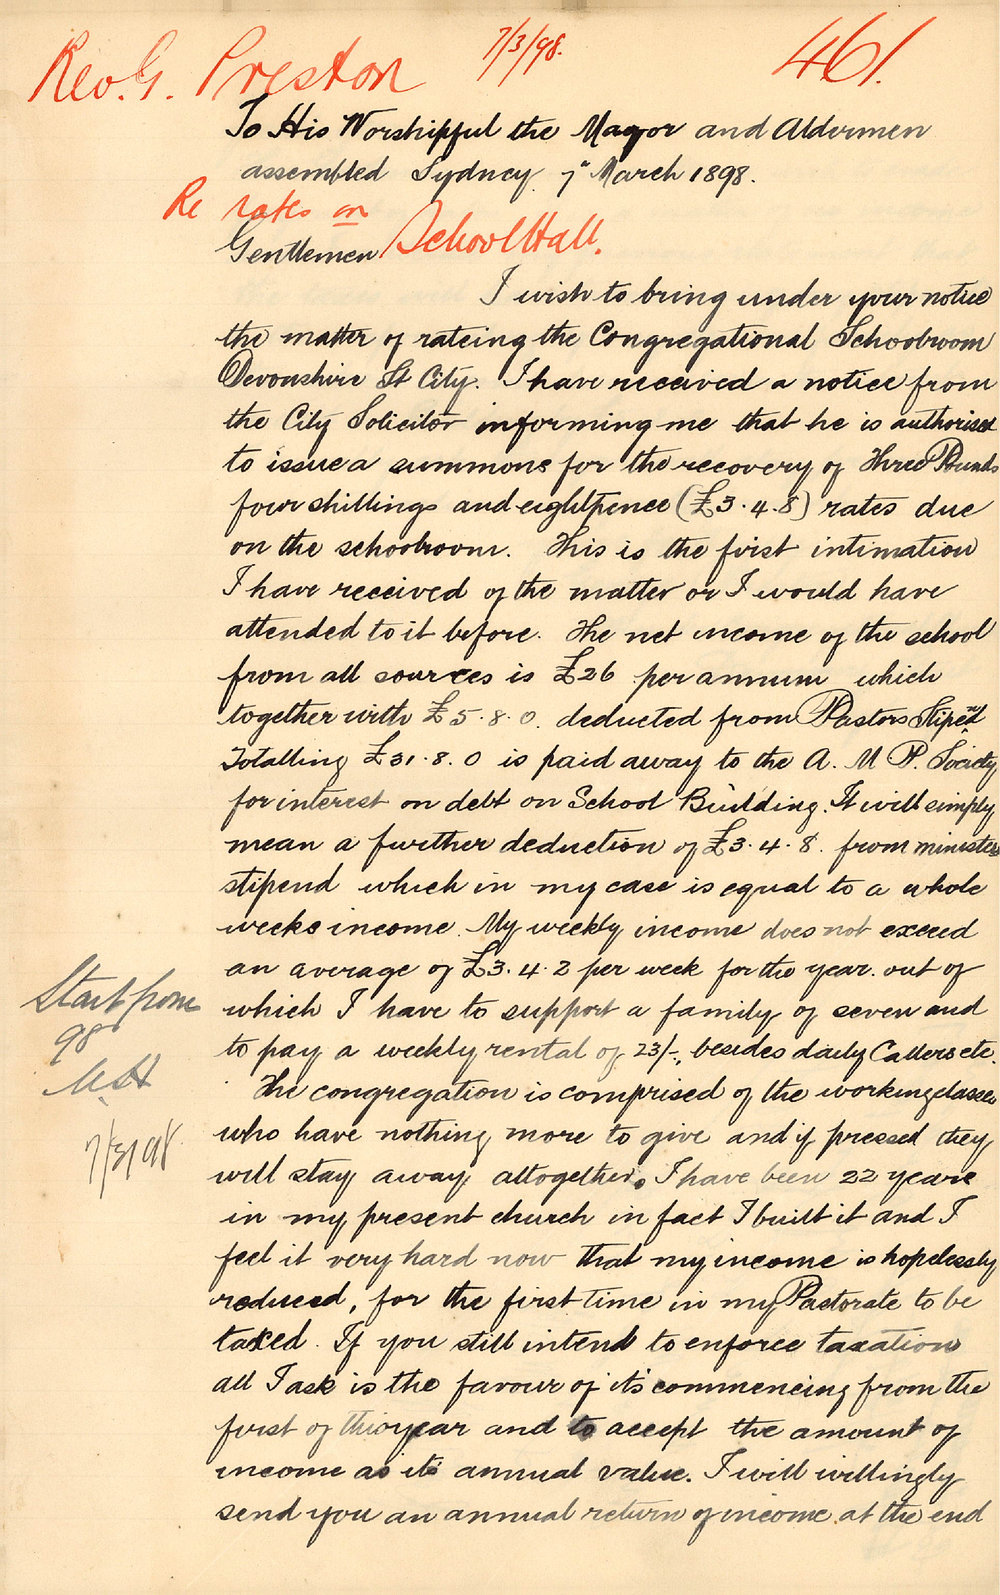 Rev. G. Preston 7/3/98. 461.
To His Worshipful the Mayor and Aldermen
assembled Sydney 7" March 1898.
Re rates on
School Hall.
Gentlemen
I wish to bring under your notice
the matter of rateing the Congregational Schoolroom
Devonshire St City. I have received a notice from
the City Solicitor informing me that he is authorised
to issue a summons for the recovery of Three Pounds
four shillings and eightpence (£3.4.8) rates due
on the schoolroom. This is the first intimation
I have received of the matter or I would have
attended to it before. The net income of the school
from all sources is £26 per annum which
together with £5.8.0. deducted from Pastors Stipend
Totalling £31.8.0 is paid away to the A. M. P. Society
for interest on debt on School Building. It will simply
mean a further deduction of £3.4.8. from ministers
stipend which in my case is equal to a whole
weeks income. My weekly income does not exceed
an average of £3.4.2 per week for the year. out of
which I have to support a family of seven and
to pay a weekly rental of 23/-, besides daily Callers etc.
The congregation is comprised of the working classes
who have nothing more to give and if pressed they
will stay away altogether. I have been 22 years
in my present church in fact I built it and I
feel it very hard now that my income is hopelessly
reduced, for the first time in my Pastorate to be
taxed. If you still intend to enforce taxation
all I ask is the favour of its commencing from the
first of this year and to accept the amount of
income as its annual value. I will willingly
send you an annual return of income at the end
Start from
98
7/3/98